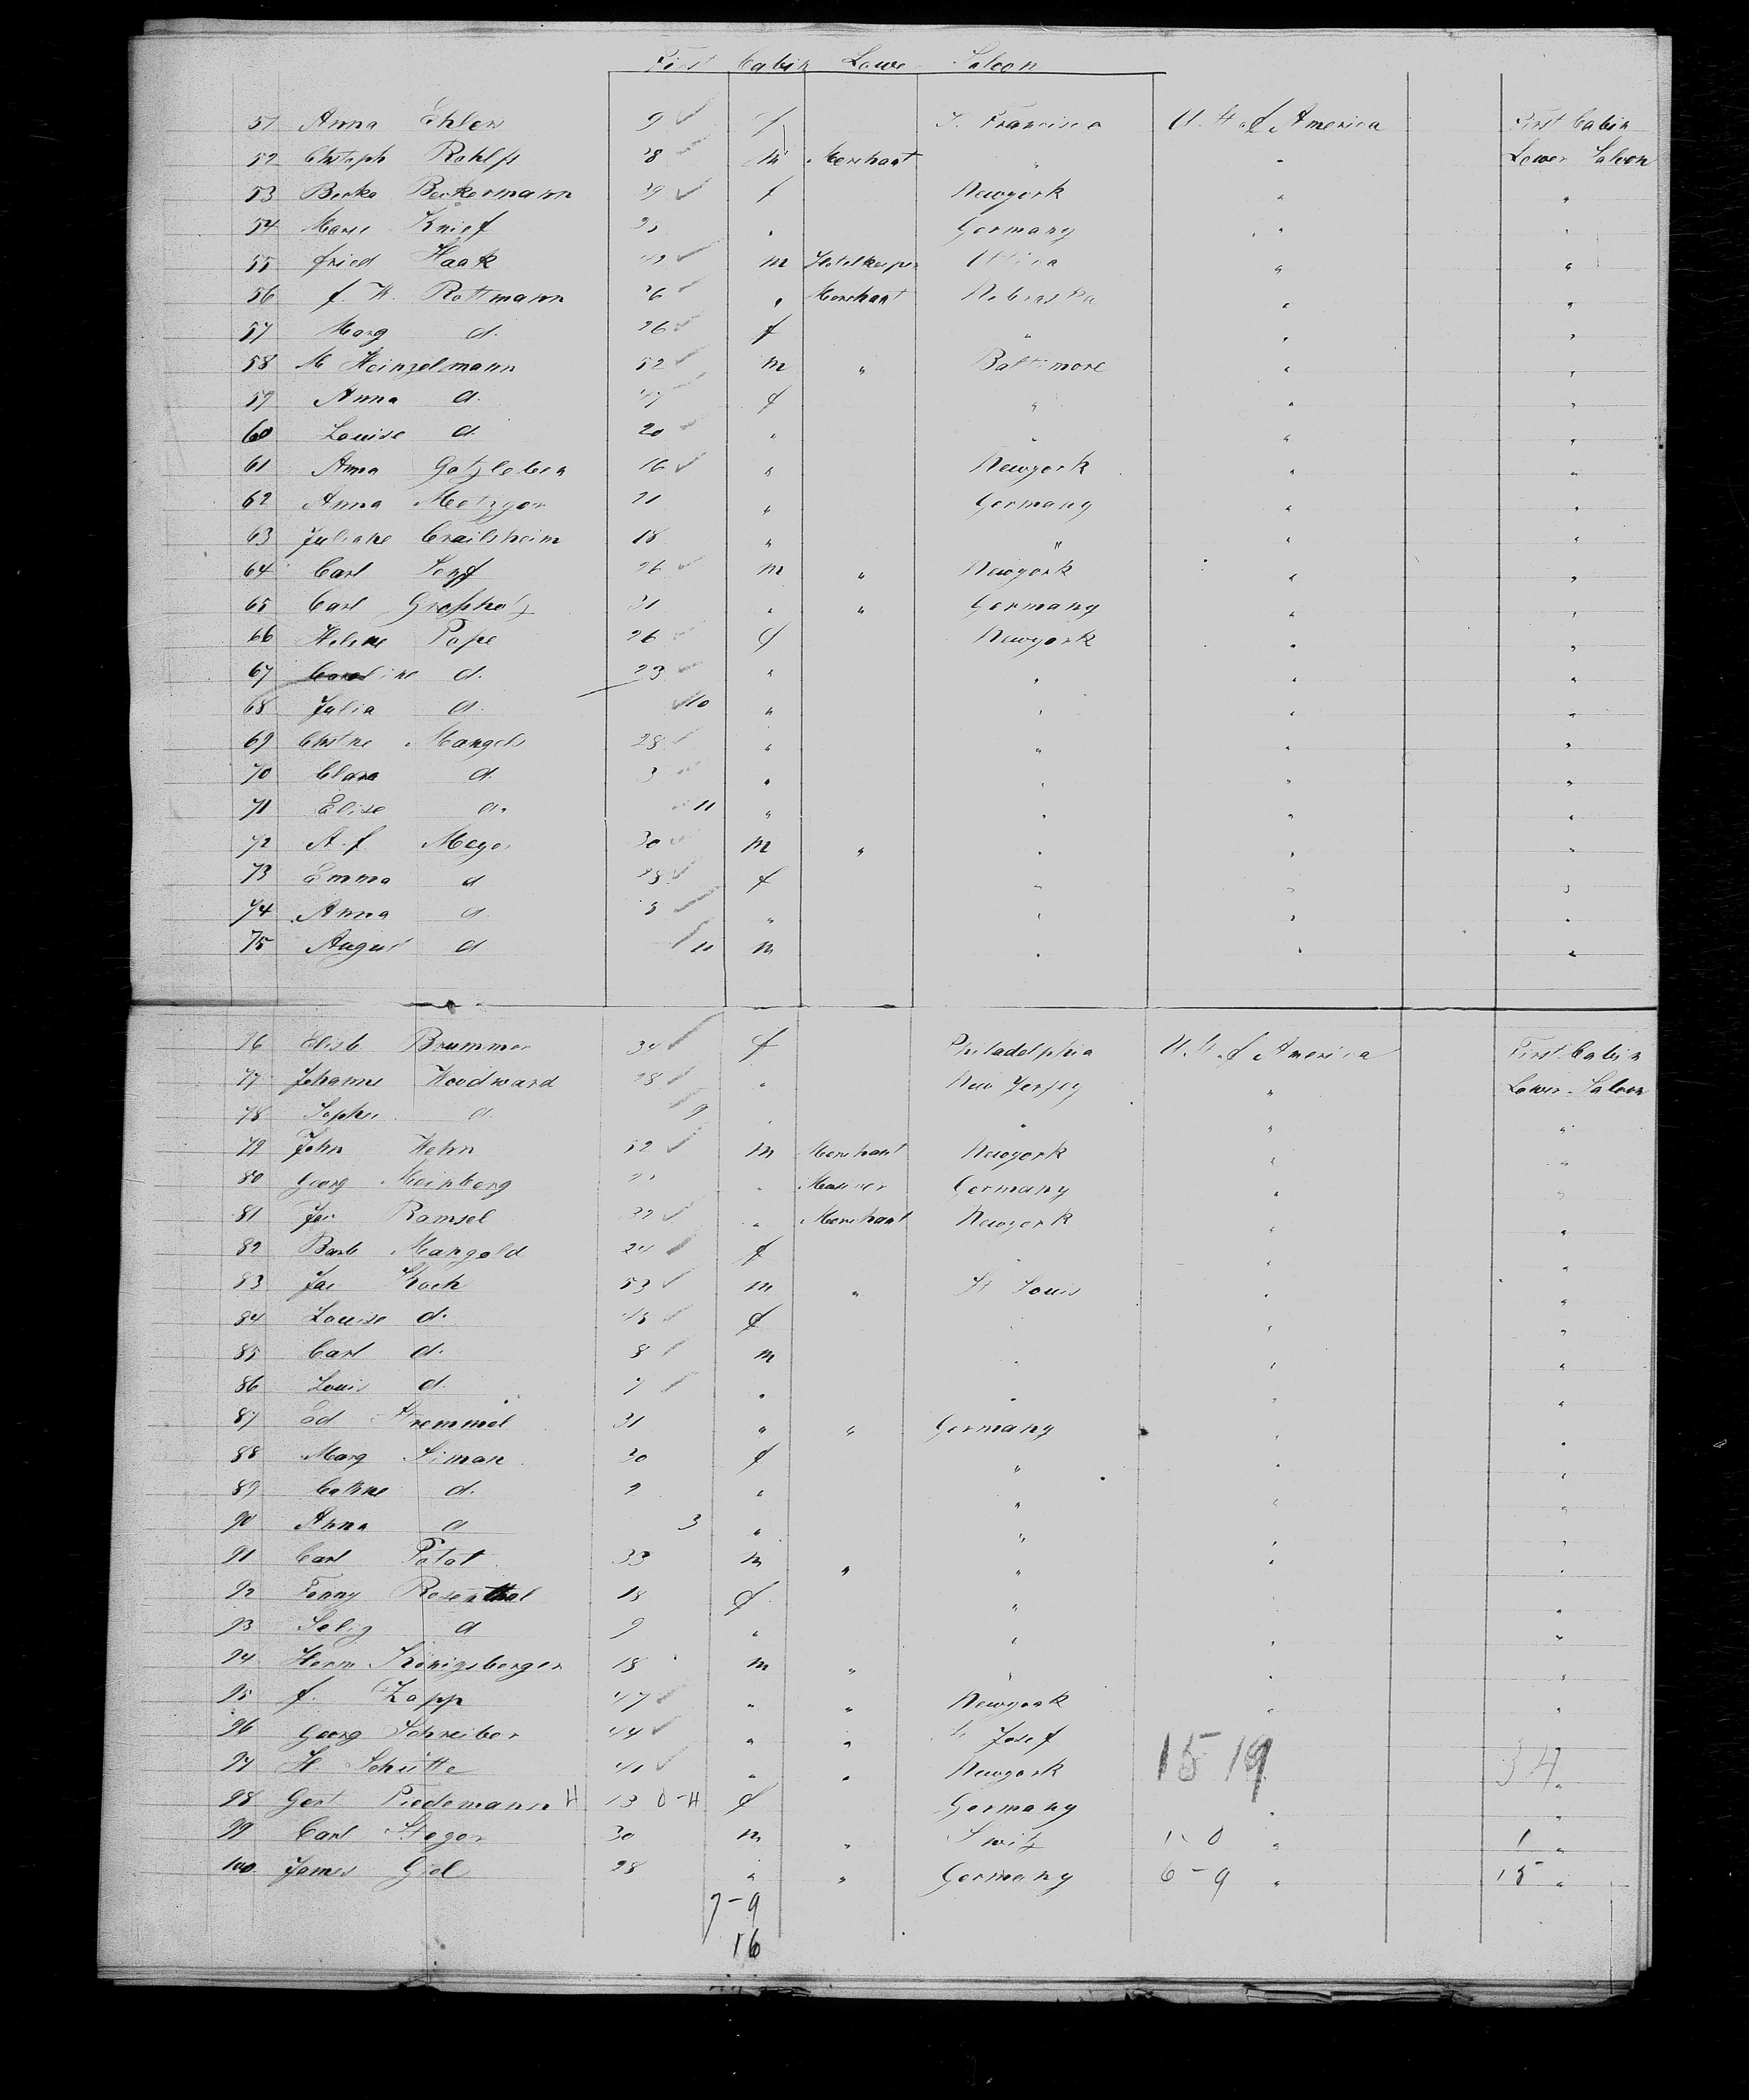 First Cabin Lower Saloon
51 Anna Ehlers 9 f S. Francisco U. St. of America First Cabin
52 Chstoph Rohlfs 38 m Merchant " " Lower Saloon
53 Beckermann 39 f Newyork " "
54 Marie Knief " Germany " "
55 fried Haak m Hotelkeeper Utica " "
56 f. W. Rottmann 36 " Merchant Nebraska " "
57 Marg d. 26 f " " "
58 M Heinzelmann 52 m " Baltimore " "
59 Anna d. 47 f " " "
60 Louise d. 20 " " " "
61 Anna Gotzleben 16 " Newyork " "
62 Anna Metzger 21 " Germany " "
63 Juliane Crailsheim 18 " " " "
64 Carl Senf 26 m " Newyork " "
65 Carl Großholz 31 " " Germany " "
66 Helene Pape 26 f Newyork " "
67 Caroline d. 23 " " " "
68 Julia d. 10 " " " "
69 Chstne Mangels 28 " " " "
70 Clara d. 3 " " " "
71 Elise d. 11 " " " "
72 A. f. Meyer 30 m " " " "
73 Emma d 28 f " " "
74 Anna d 3 " " " "
75 August d 11 m " " "
76 Elisb Brummer 34 f Philadelphia U. St. of America First Cabin
77 Johanne Woodward 28 " New Jersey " Lower Saloon
78 Sophie d 9 " " " "
79 John Hehn 52 m Merchant Newyork " "
80 Georg Meinberg " Germany " "
81 Jac Ramsel 32 " Merchant Newyork " "
82 Barb Mangold 24 f " " "
83 Jac Koch 53 m " St Louis " "
84 Louise d. 45 f " " "
85 Carl d. 8 m " " "
86 Louis d. 7 " " " "
87 Ed Stremmel 31 " " Germany " "
88 Marg Siman 30 f " " "
89 Cathne d. 9 " " " "
90 Anna d 3 " " " "
91 Carl Patat 33 m " " " "
92 Fanny Rosenthal 18 f " " "
93 Selig d 9 " " " "
94 Herm Königsberger 18 m " " " "
95 f. Zapp 47 " " Newyork " "
96 Georg Schreiber 44 " " St Josef
97 H Schütte 41 " " Newyork 15 19 34 "
98 Gert Tiedemann H 13 0-H f Germany " "
99 Carl Steger 30 m " Switz 1-0 " 1 "
100 James Giel 28 " " Germany 6-9 " 15 "
7-9
16